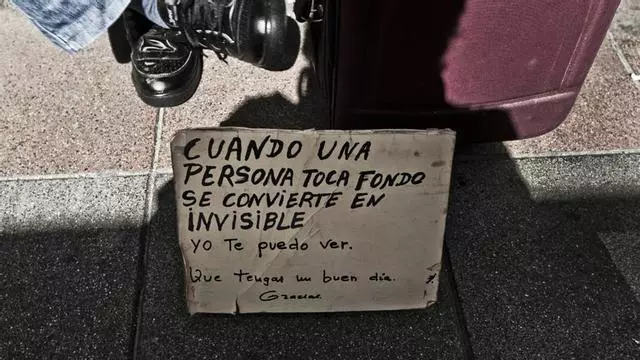 CUANDO UNA
PERSONA TOCA FONDO
SE CONVIERTE EN
INVISIBLE
YO Te puedo ver.
Que tengas un buen día.
Gracias.